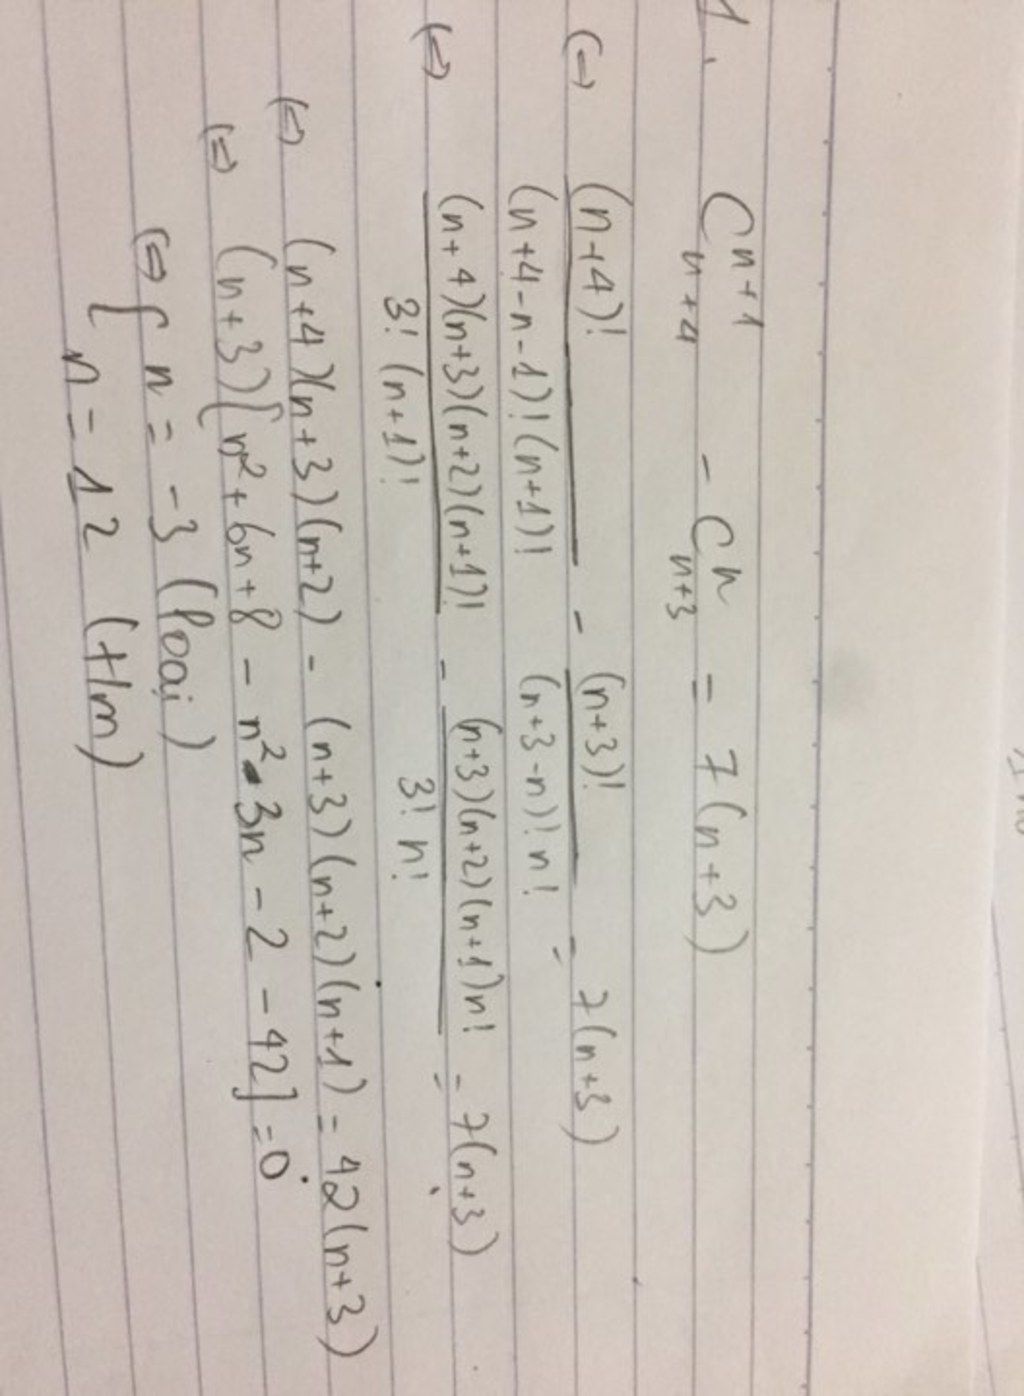 1. C_{n+4}^{n+1} - C_{n+3}^{n} = 7(n+3)
(=) \frac{(n+4)!}{(n+4-n-1)!(n+1)!} - \frac{(n+3)!}{(n+3-n)!n!} = 7(n+3)
(=) \frac{(n+4)(n+3)(n+2)(n+1)!}{3!(n+1)!} - \frac{(n+3)(n+2)(n+1)n!}{3!n!} = 7(n+3)
(=) (n+4)(n+3)(n+2) - (n+3)(n+2)(n+1) = 42(n+3)
(=) (n+3)[n²+6n+8 - n² - 3n - 2 - 42] = 0
(=) { n = -3 (loại)
n = 12 (t/m)